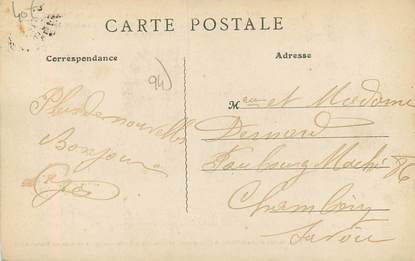 40f
CARTE POSTALE
Correspondance
Adresse
94)
Plus de nouvelles
Bonjour
Meur et Madame
Faubourg Maché 86
Chambéry
Savoie